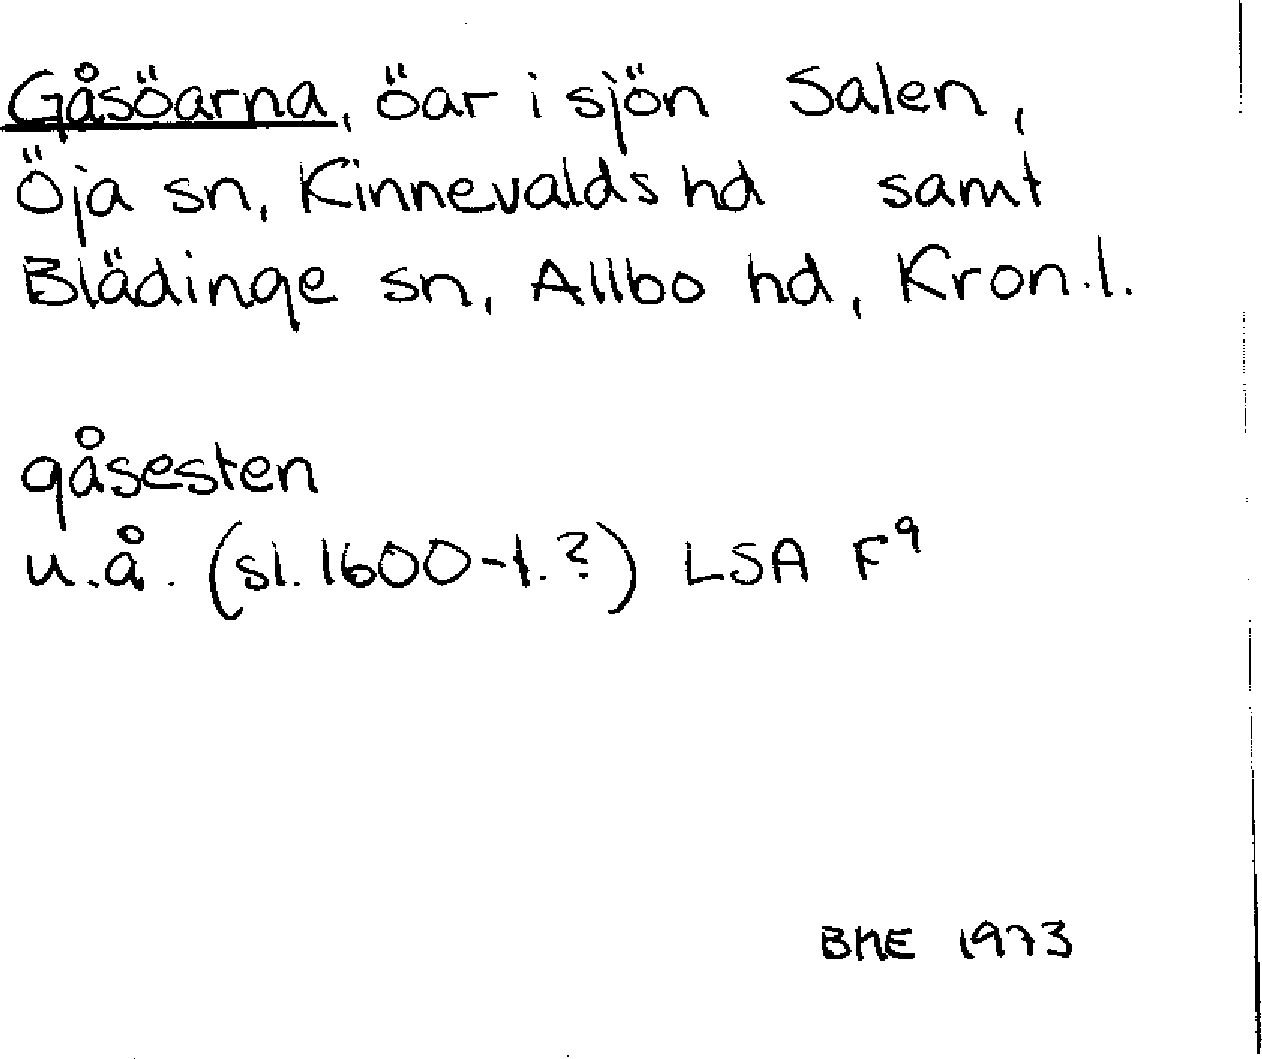 Gåsöarna, öar i sjön Salen,
Öja sn, Kinnevalds hd samt
Blädinge sn, Allbo hd, Kron.l.
gåsesten
u.å. (sl. 1600-t.?) LSA F9
BME 1973